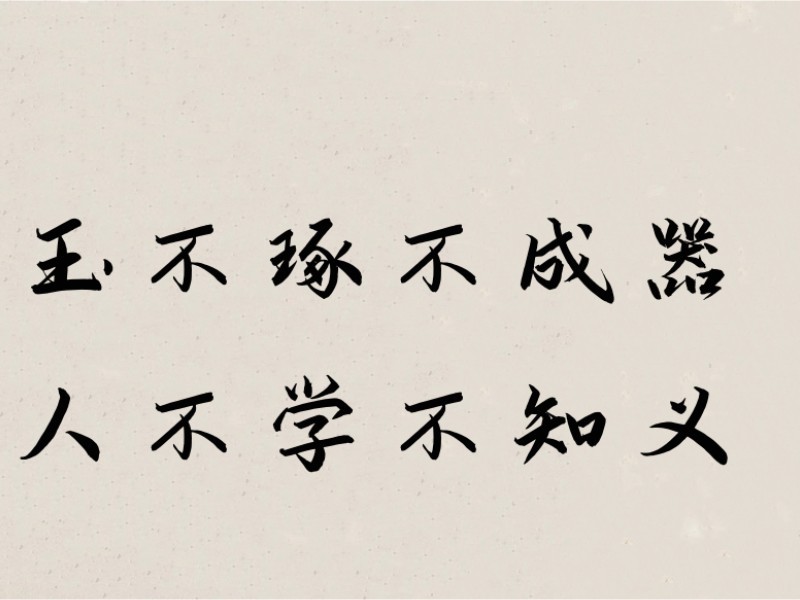 玉不琢不成器
人不学不知义